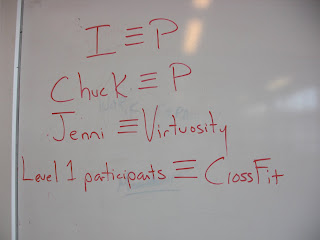 I ≡ P
Chuck ≡ P
Jenni ≡ Virtuosity
Level 1 participants ≡ CrossFit